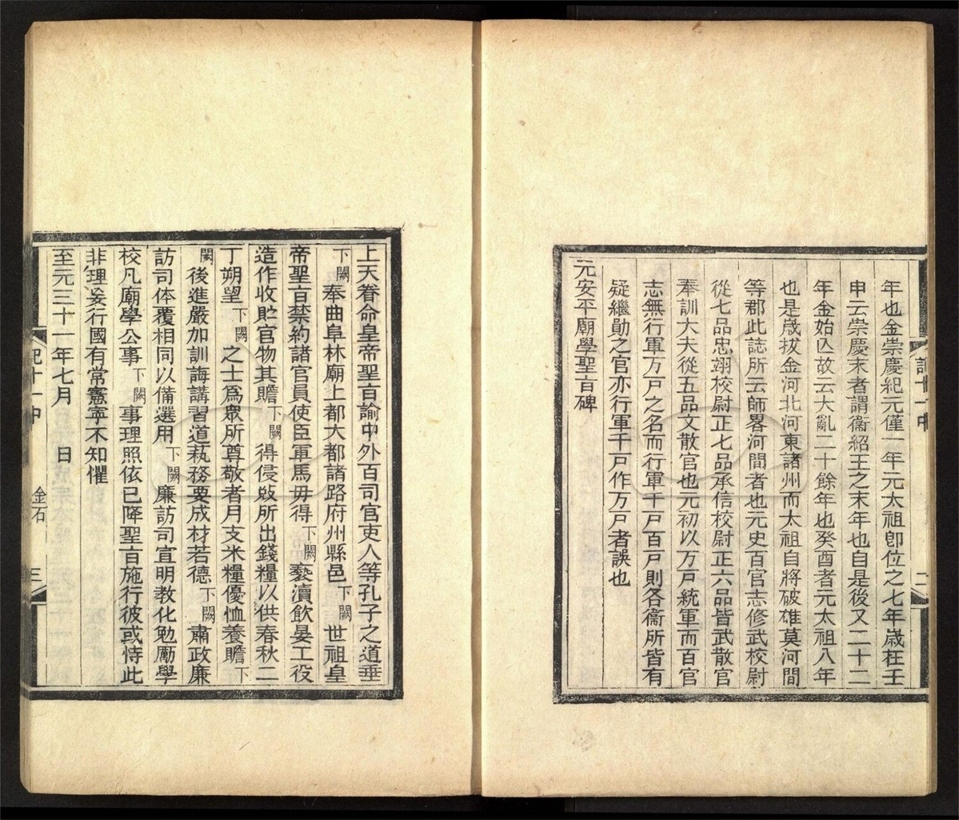 年也金崇慶紀元僅一年元太祖卽位之七年歲在壬
申云崇慶末者謂衞紹王之末年也自是後又二十二
年金始亾故云大亂二十餘年也癸酉者元太祖八年
也是歲拔金河北河東諸州而太祖自將破雄莫河間
等郡此誌所云師畧河間者也元史百官志修武校尉
從七品忠翊校尉正七品承信校尉正六品皆武散官
奉訓大夫從五品文散官也元初以万戸統軍而百官
志無行軍万戸之名而行軍千戸百戸則各衞所皆有
疑繼勛之官亦行軍千戸作万戸者誤也
元安平廟學聖旨碑
上天眷命皇帝聖旨諭中外百司官吏人等孔子之道垂
下闕奉曲阜林廟上都大都諸路府州縣邑下闕世祖皇
帝聖旨禁約諸官員使臣軍馬毋得下闕褻瀆飲宴工役
造作收貯官物其贍下闕得侵敚所出錢糧以供春秋二
丁朔望下闕之士爲眾所尊敬者月支米糧優恤養贍下
闕後進嚴加訓誨講習道蓺務要成材若德下闕肅政廉
訪司体覆相同以備選用下闕廉訪司宣明教化勉厲學
校凡廟學公事下闕事理照依已降聖旨施行彼或恃此
非理妄行國有常憲寧不知懼
至元三十一年七月　日
紀十一中　金石　三